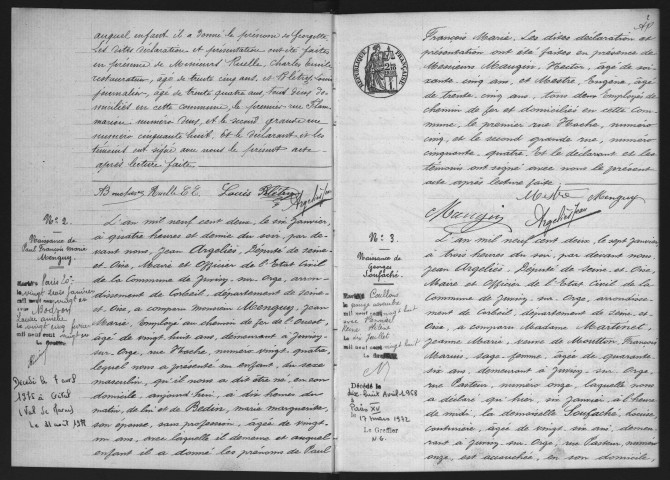 auquel enfant il a donné le prénom de Georgette.
Les dites déclaration et présentation ont été faites
en présence de Messieurs Ruelle, Charles Emile
restaurateur, âgé de trente cinq ans, et Blétry Louis
journalier, âgé de trente quatre ans, tous deux do-
miciliés en cette commune, le premier rue Flam-
marion numéro deux, et le second grande rue
numéro cinquante huit. Et le déclarant et les
témoins ont signé avec nous le présent acte
après lecture faite.
Ruelle E.E. Louis Blétry
Argeliès Jean
N° 2.
Naissance de
Paul François Marie
Menguy.
L'an mil neuf cent deux, le six janvier,
à quatre heures et demie du soir, par de-
vant nous, Jean Argeliès, Député de Seine-
et Oise, Maire et Officier de l'Etat Civil
de la Commune de Juvisy-sur-Orge, arron-
dissement de Corbeil, département de Seine-
et Oise, a comparu Monsieur Menguy, Jean
Marie, Employé au chemin de fer de l'Ouest
âgé de vingt huit ans, demeurant à Juvisy-
sur-Orge, rue Hoche, numéro vingt quatre,
lequel nous a présenté un enfant du sexe
masculin, qu'il nous a dit être né, en son
domicile, aujourd'hui, à dix heures du
matin, de lui et de Bedin, Marie Marguerite,
son épouse, sans profession, âgée de vingt-
un ans, avec laquelle il demeure et auquel
enfant il a donné les prénoms de Paul
Décédé le 7 avril
1975 à Créteil
(Val de Marne)
Le 21 août 19
François Marie. Les dites déclaration et
présentation ont été faites en présence de
Messieurs Mengin, Hector, âgé de soi-
xante cinq ans, et Mestre, Eugène, âgé
de trente cinq ans, tous deux Employés de
chemin de fer et domiciliés en cette com-
mune, le premier rue Hoche, numéro
cinq, et le second grande rue, numéro
cinquante quatre. Et le déclarant et les
témoins ont signé avec nous le présent
acte après lecture faite.
Mestre Menguy
Mengin Argeliès Jean
RÉPUBLIQUE FRANÇAISE
N° 3.
Naissance de
Georges
Loufaché.
L'an mil neuf cent deux, le sept janvier
à trois heures du soir, par devant nous
Jean Argeliès, Député de Seine et Oise,
Maire et Officier de l'Etat Civil de
la Commune de Juvisy-sur-Orge, arrondisse-
ment de Corbeil, département de Seine et
Oise, a comparu Madame Martinet
Jeanne Marie, veuve de Moutton, François
Marius, sage-femme, âgée de quarante
six ans, demeurant à Juvisy-sur-
Orge, rue Pasteur, numéro onze, laquelle nous
a déclaré qu'hier, six janvier, à l'heure
de midi, la demoiselle Loufaché, Louise,
couturière, âgée de vingt six ans, demeu-
rant à Juvisy-sur-Orge, rue Pasteur, numéro
onze, est accouchée, en son domicile,
Décédé le
dix-huit Avril 1958
à Paris XV
17 mars 1972
Le Greffier